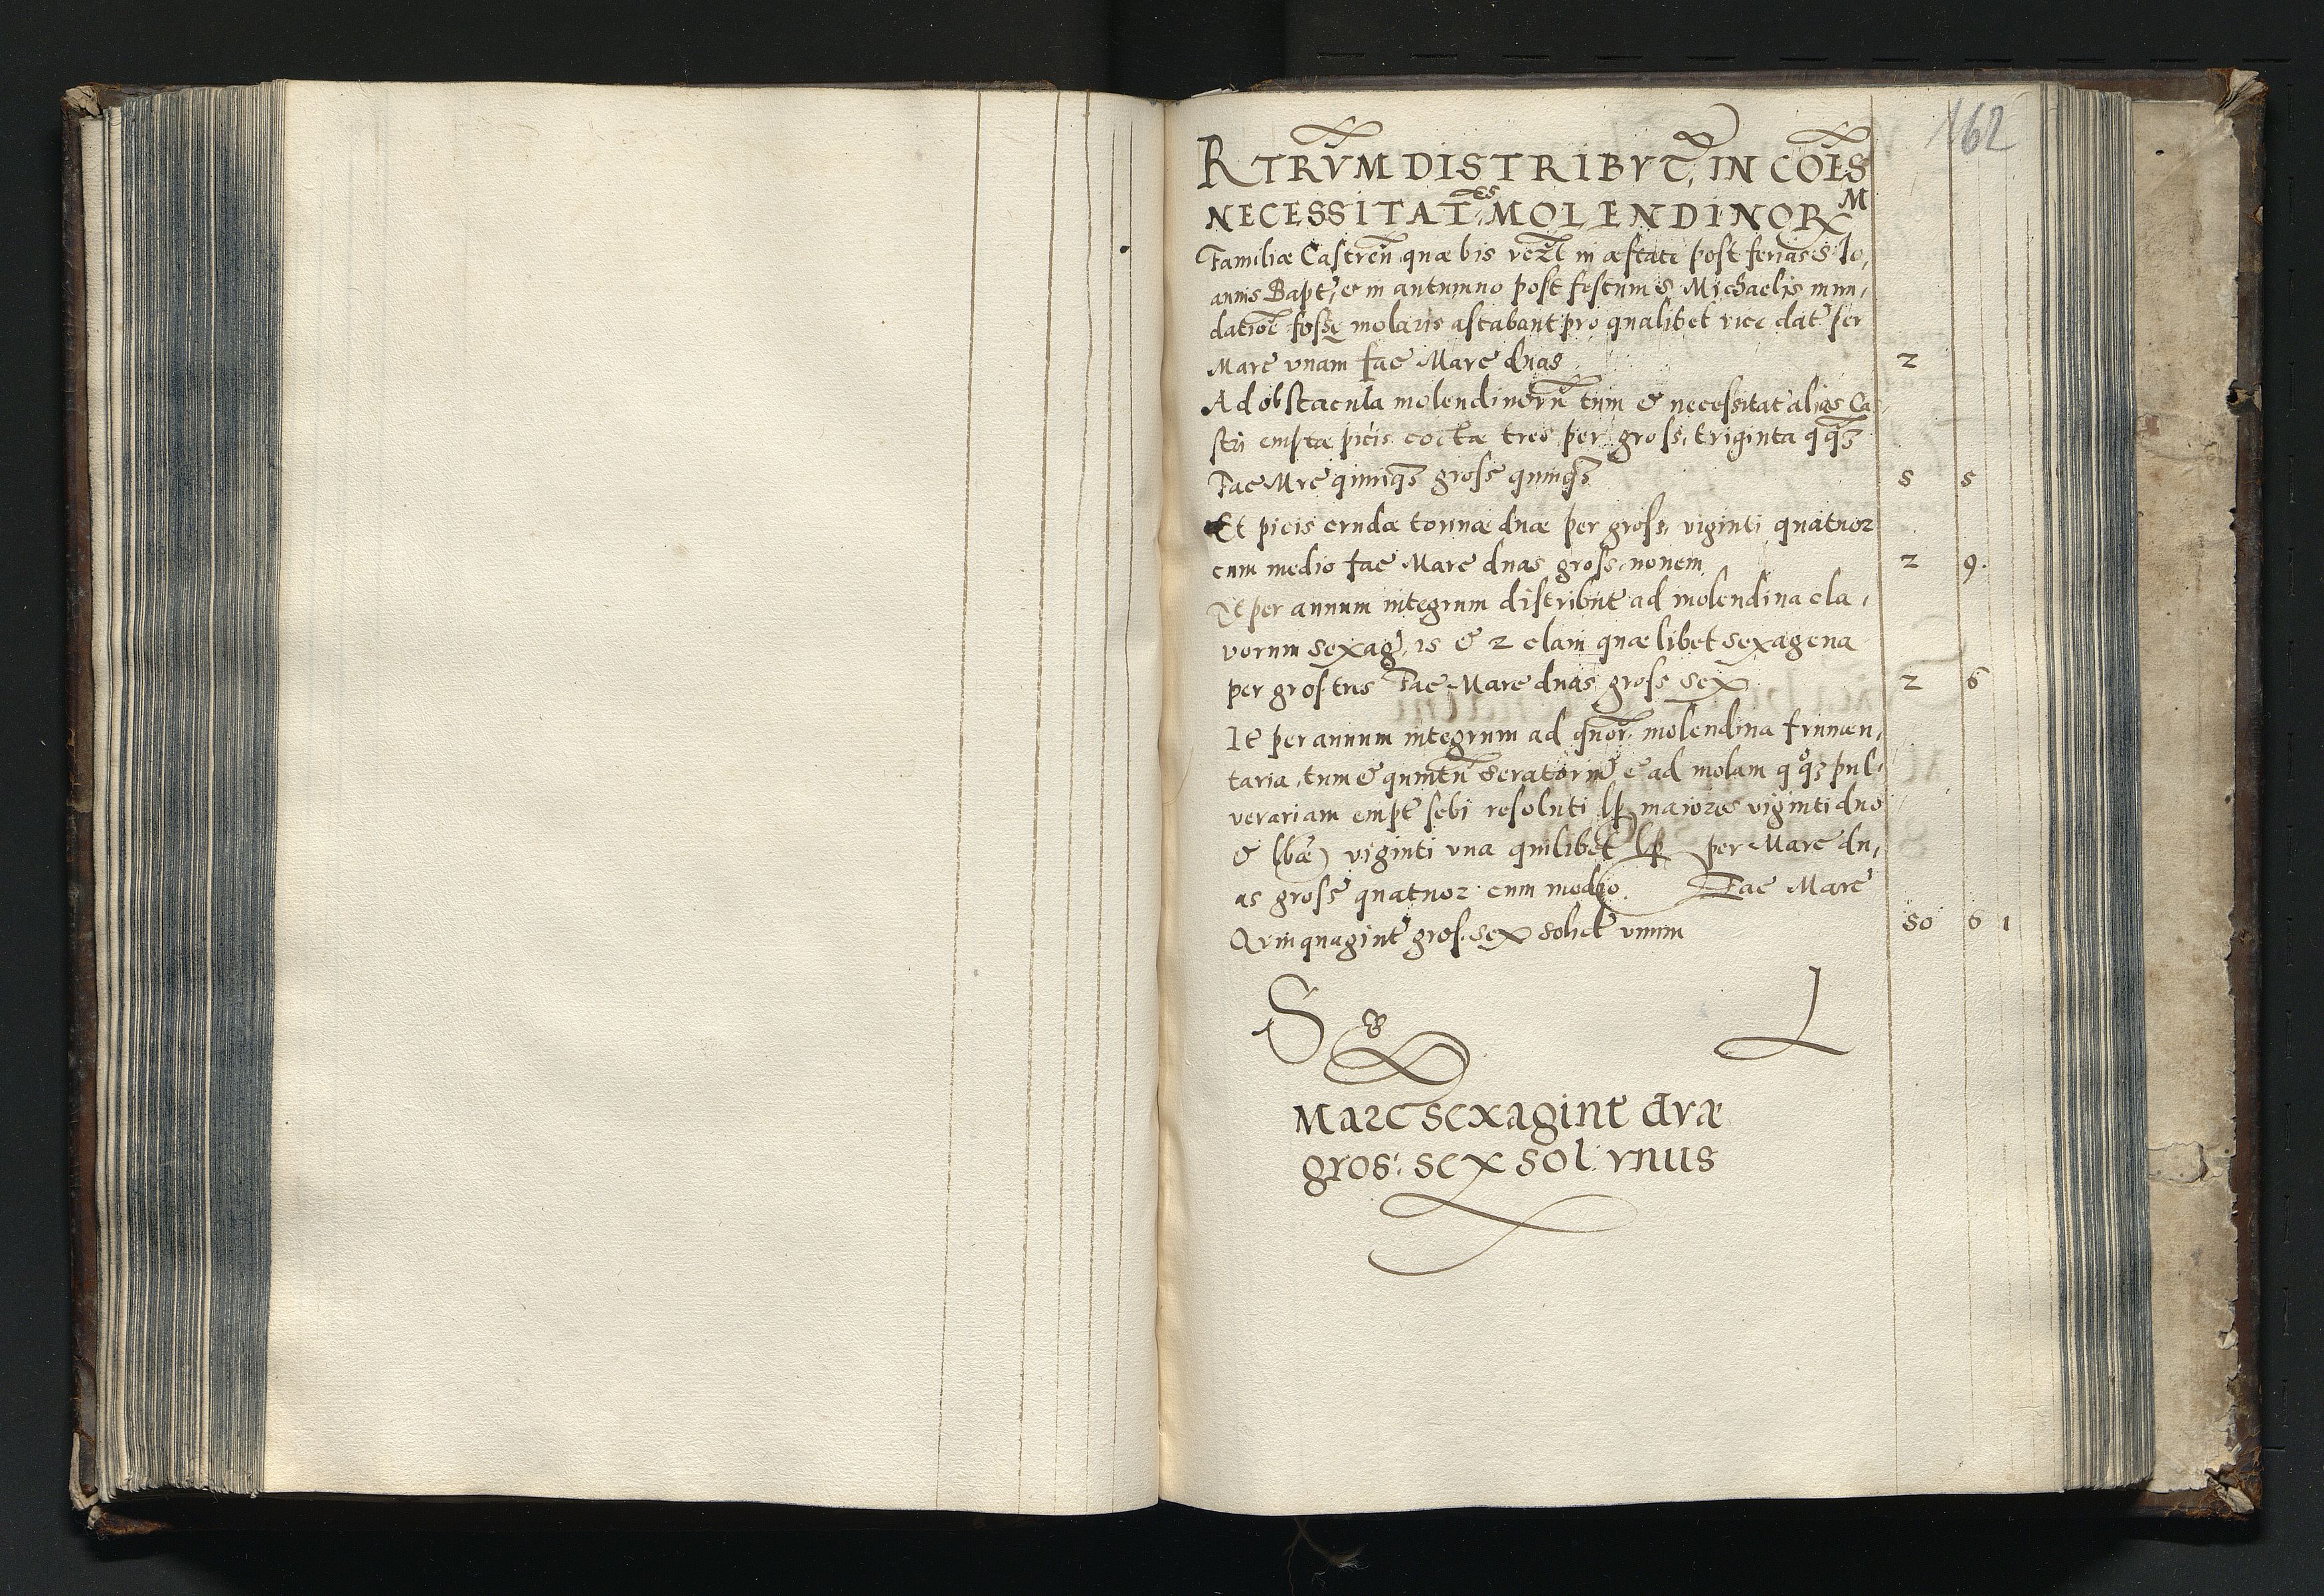 162
RTRVM DISTRIBVT, IN COES
NECESSITATES MOLENDINORM
Familiæ Castren quæ bis vezt in æstate post ferias S Jo,
annis Bapt, & in autumno post festum S Michaelis mun,
datioe fossę molaris astabant pro qualibet vice dat per
Marc vnam fac Marc duas 2
Ad obstacula molendinoru tum & necessitat alias Ca
stri emptæ picis coctæ tres per gross, triginta qqz
Fac Mrc quinqz gross quinqz 5 5
Et picis crudæ tonnæ duæ per gross, viginti quatuor
cum medio fac Marc duas gross nonem 2 9.
It per annum integrum distribut ad molendina cla,
vorum sexag, 15 & 2 clam quælibet sexagena
per gros tres Fac Marc duas gross sex 2 6
It per annum integrum ad quor molendina frumen,
taria, tum & quintu seratoriu & ad molam qqz pul,
verariam empt sebi resoluti lp maiores viginti duo
& lbæ viginti vna quilibet lp per Marc du,
as gross quatuor cum medio. Fac Marc
Qvinquagint gros. sex solid vnum 50 6 1
S L
Marc sexagint dvæ
gros. sex sol vnus